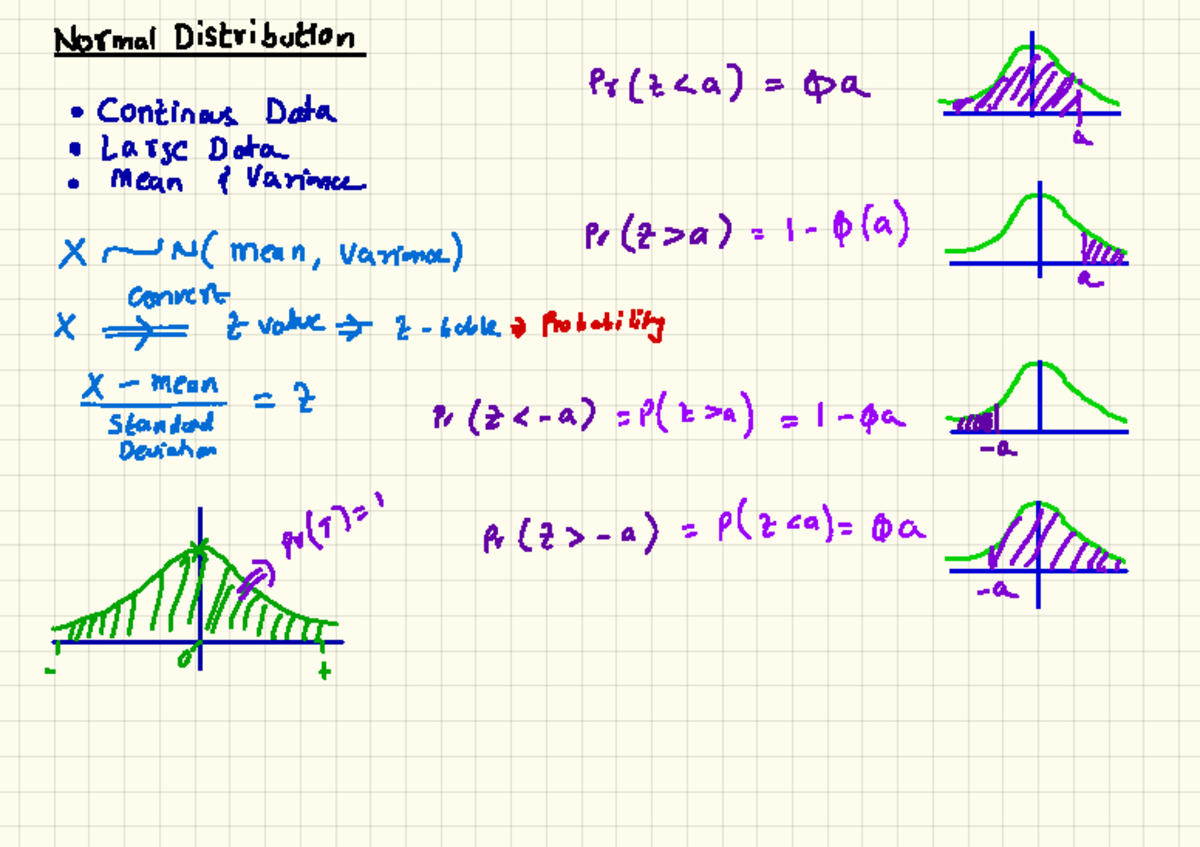 Normal Distribution
• Continous Data
• Large Data
• Mean & Variance
X ~ N( mean, Variance)
Convert
X ⇒ Z value ⇒ Z - table → Probability
X - mean
= Z
Standard
Deviation
Pr(T)=1
- 0 +
Pr(Z<a) = ϕa
a
Pr(Z>a) = 1-ϕ(a)
a
Pr(Z<-a) = P(Z>a) = 1-ϕa
-a
Pr(Z>-a) = P(Z<a)= ϕa
-a